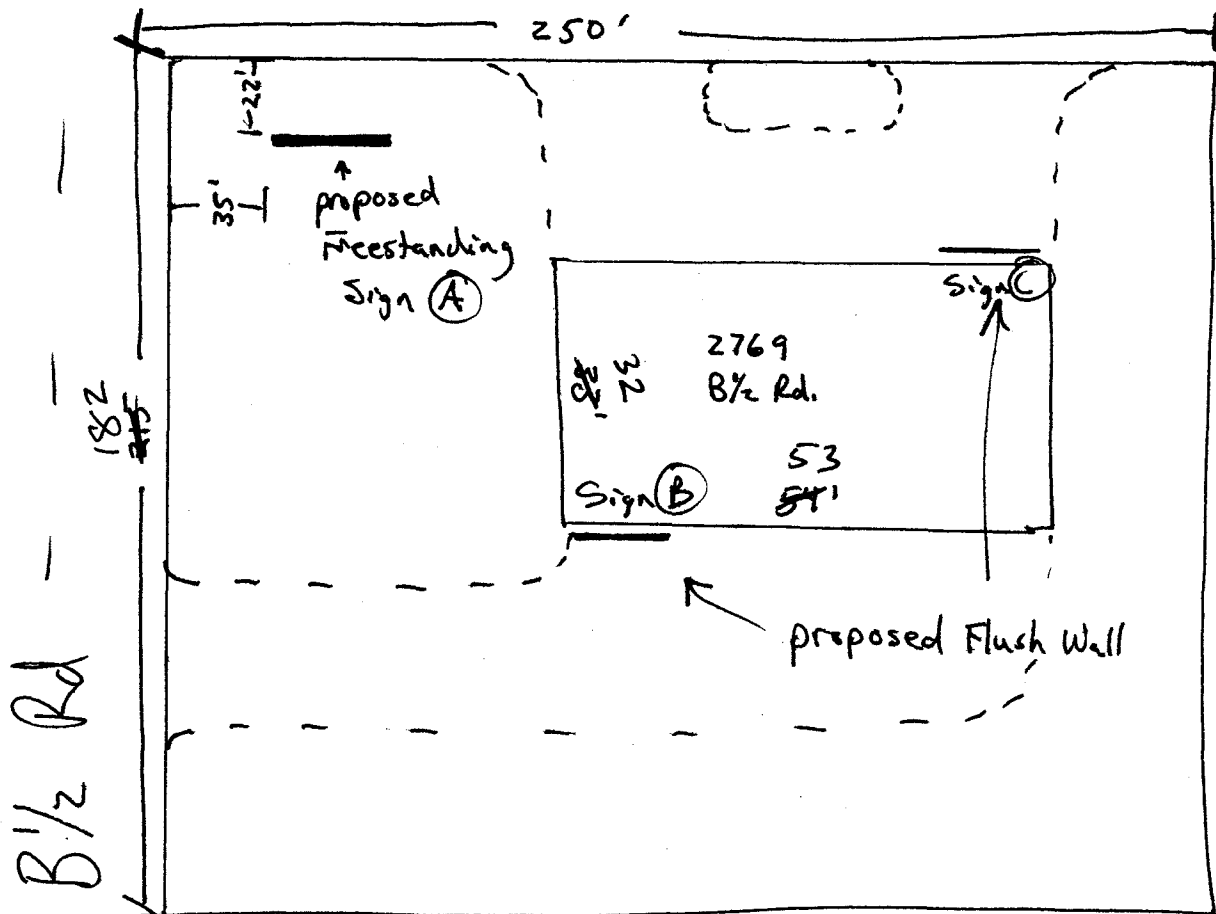 250'
22'
35'
proposed
Freestanding
Sign A
Sign C
32
2769
B½ Rd.
53
54'
Sign B
182
215
proposed Flush Wall
B½ Rd